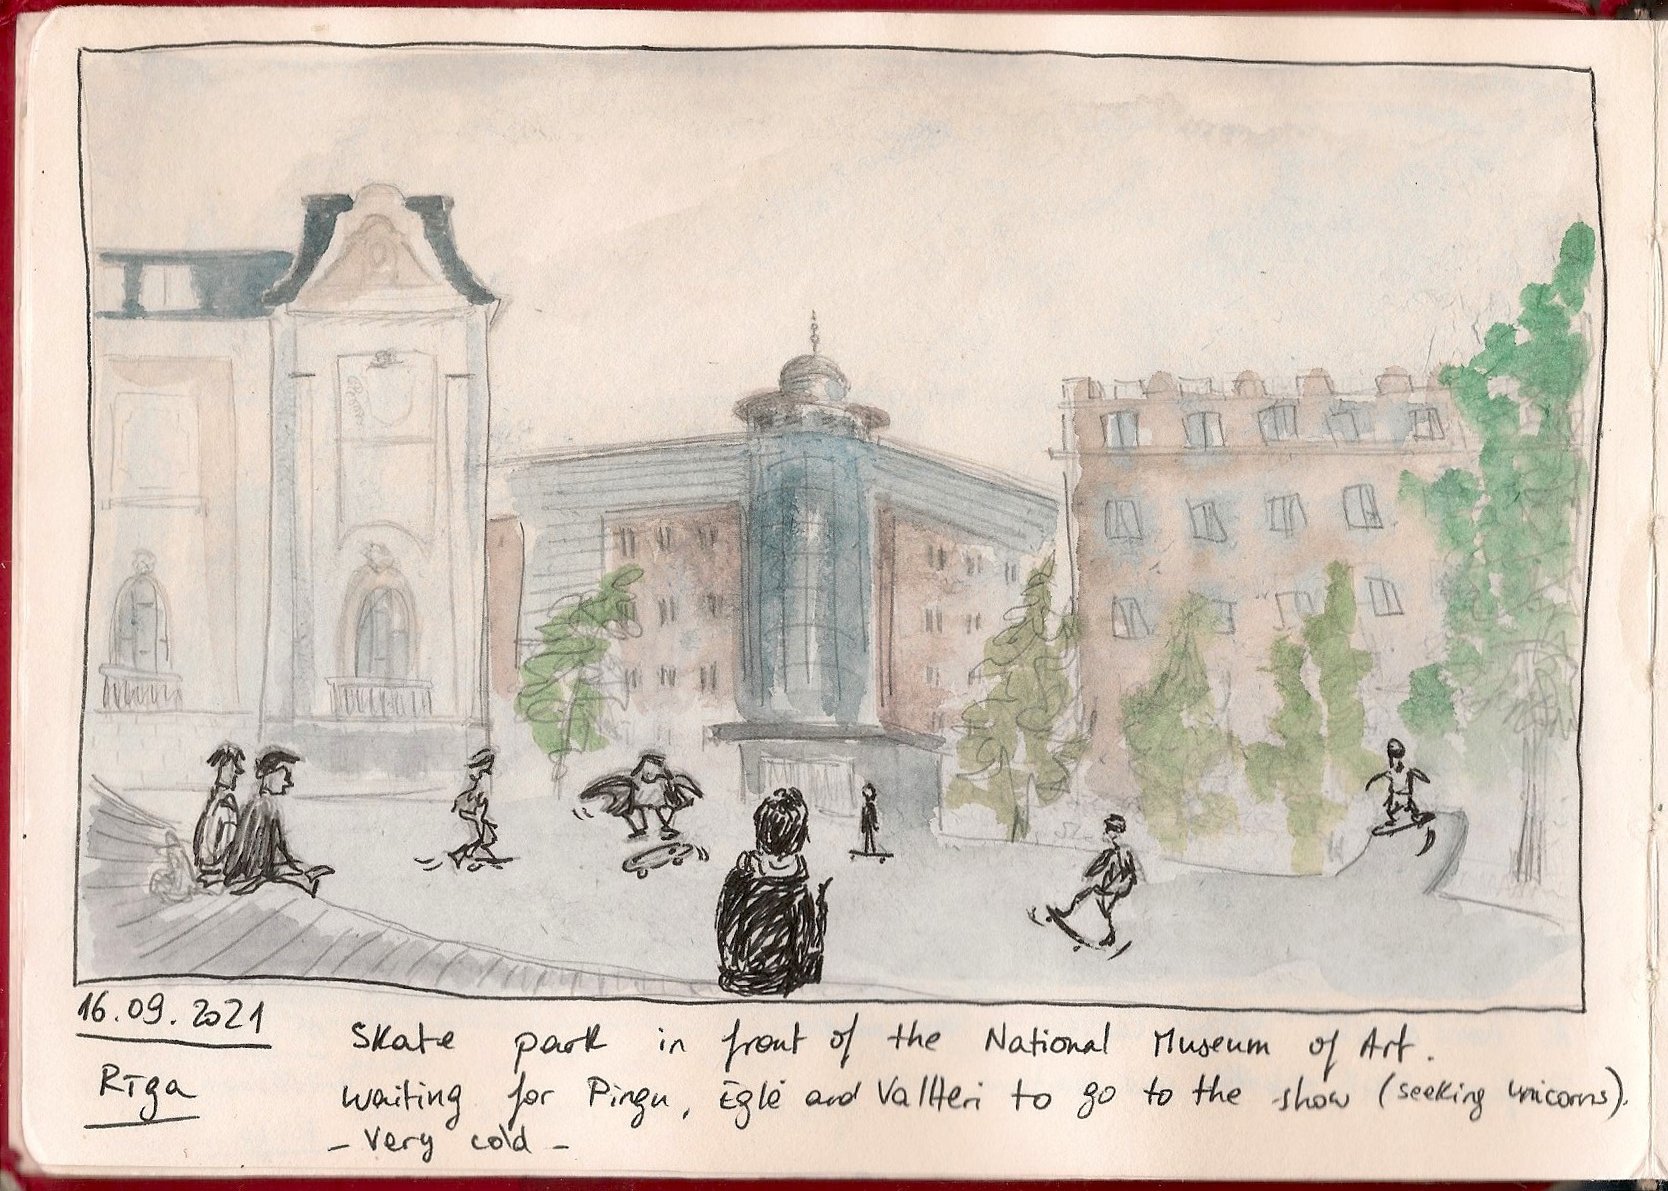 16.09.2021
Rīga
Skate park in front of the National Museum of Art.
waiting for Pingu, Eglė and Valtteri to go to the show (seeking unicorns).
- very cold -